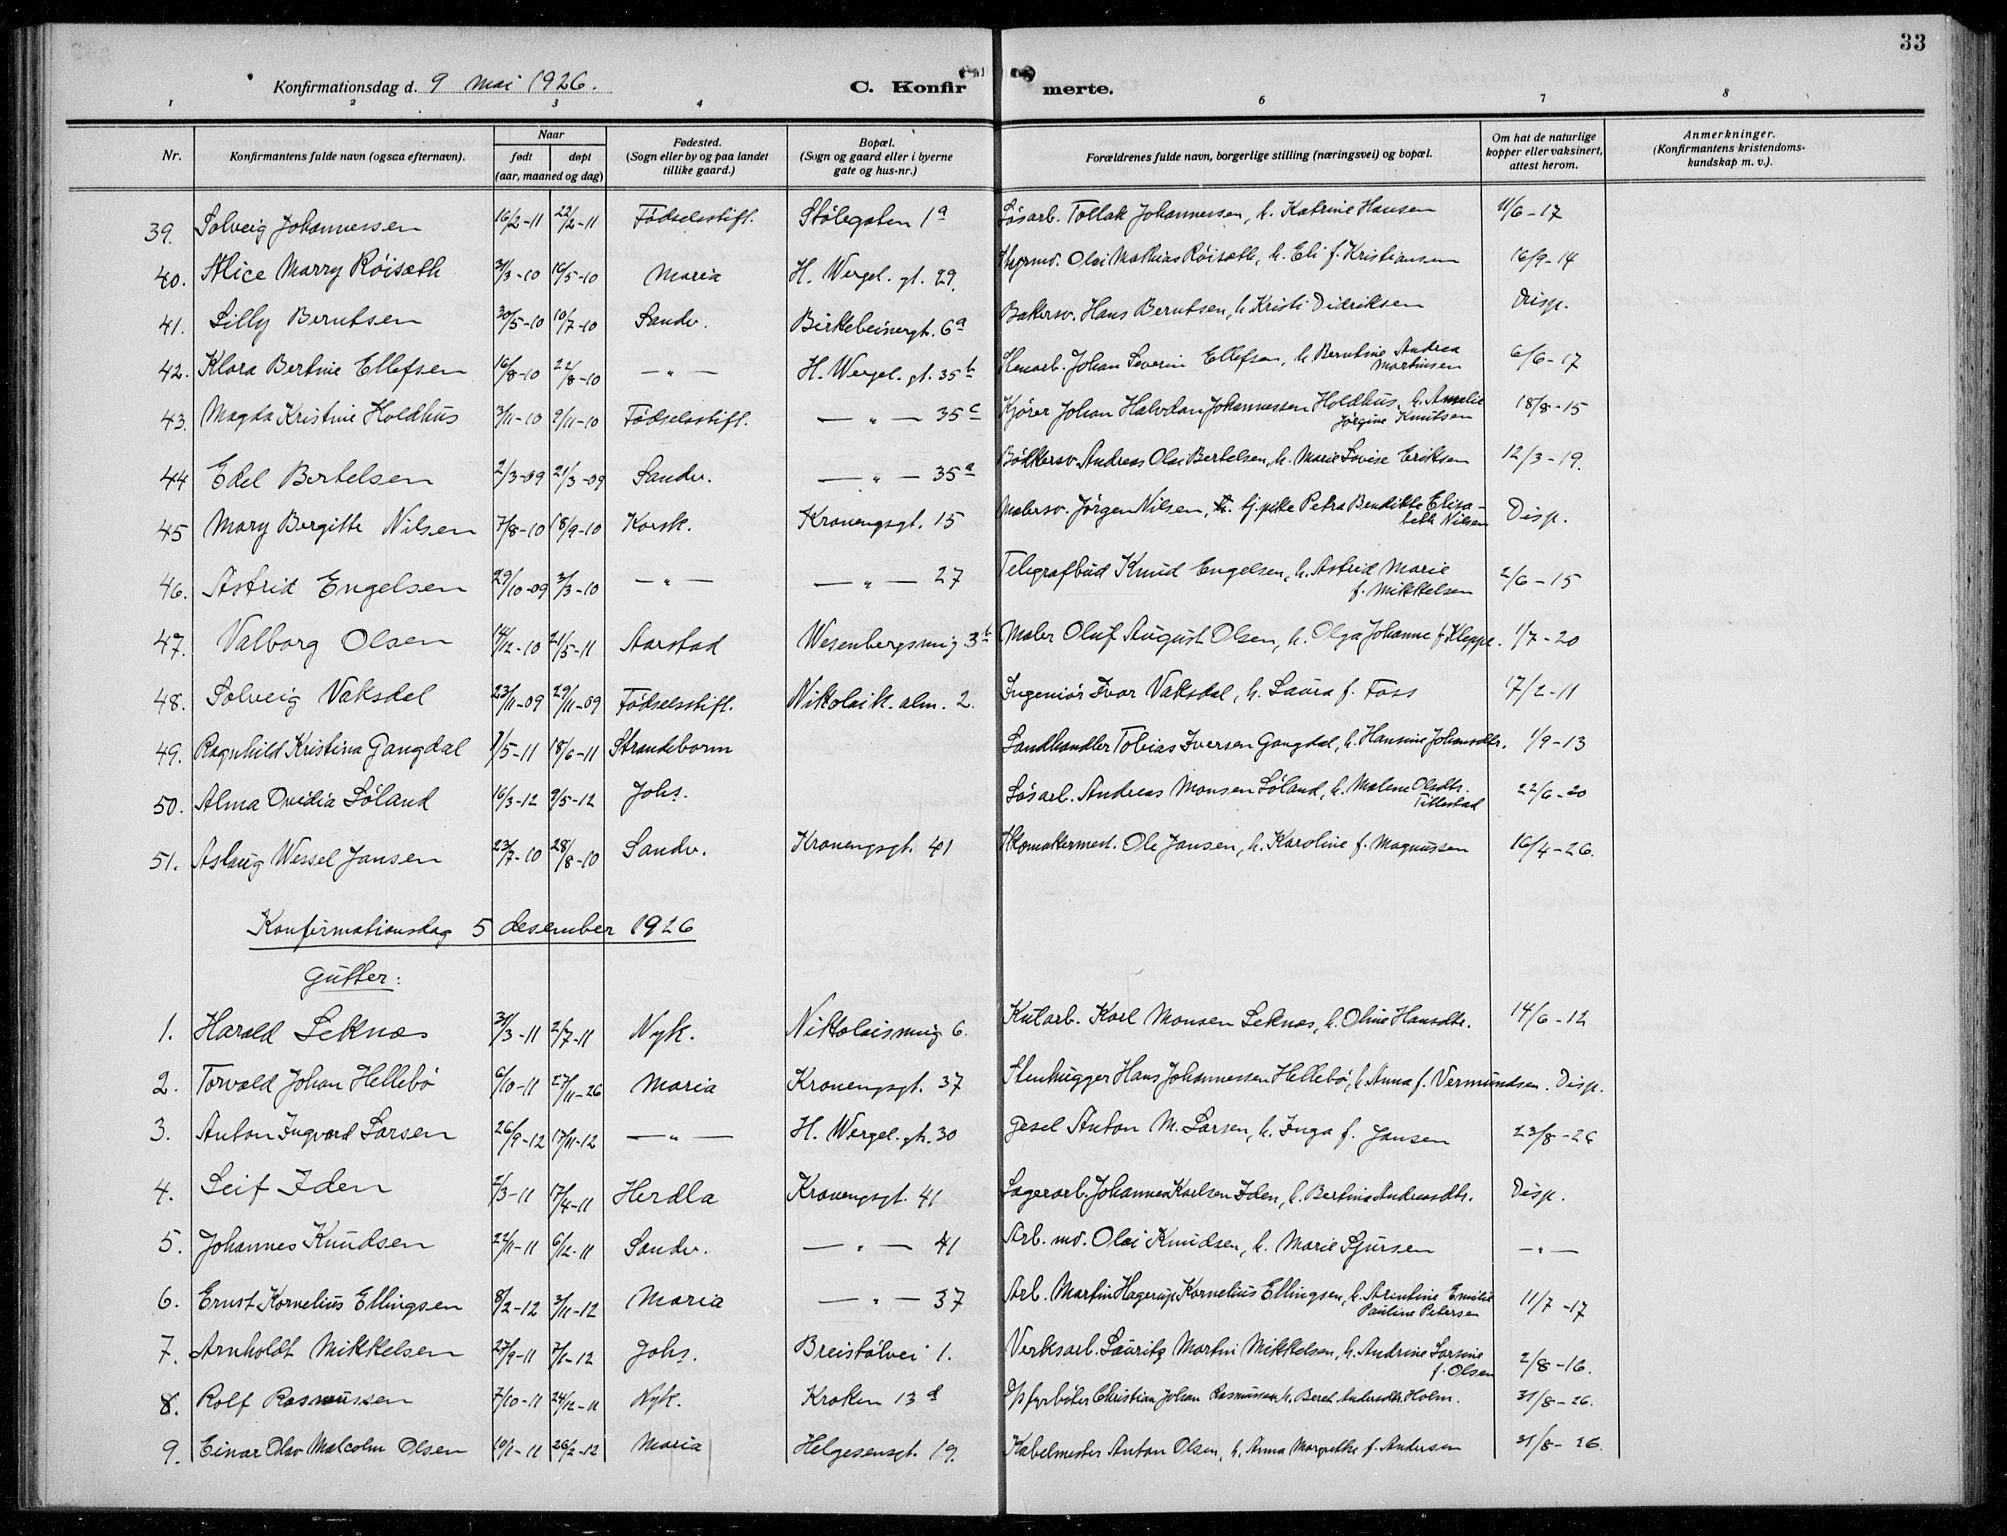 33
Konfirmationsdag d. 9 mai 1926.
C. Konfirmerte.
1 2 3 4 5 6 7 8
Nr.
Konfirmantens fulde navn (ogsaa efternavn).
Naar
født døpt
(aar, maaned og dag)
Fødested.
(Sogn eller by og paa landet
tillike gaard.)
Bopæl.
(Sogn og gaard eller i byerne
gate og hus-nr.)
Forældrenes fulde navn, borgerlige stilling (næringsvei) og bopæl.
Om hat de naturlige
kopper eller vaksinert,
attest herom.
Anmerkninger.
(Konfirmantens kristendoms-
kundskap m. v.).
39. Solveig Johannessen 16/2-11 22/2-11 Fødselsstift. Stølegaten 1a Løsarb. Tollak Johannessen, h. Katrine Hansen 11/6-17
40. Alice Marry Røisæth 31/3-10 16/5-10 Maria H. Wergel. gt. 29. Styrmd. Olai Mathias Røisæth, h. Eli f. Kristiansen 16/9-14
41. Lilly Berntsen 30/5-10 10/7-10 Sandv. Birkebeinergt. 6a Bakersv. Hans Berntsen, h. Kristi Didriksen Disp.
42. Klara Bertine Ellefsen 16/8-10 22/8-10 — „ — H. Wergel. gt. 35b Stenarb. Johan Severin Ellefsen, h. Berntine Andrea Martinsen 6/6-17
43. Magda Kristine Holdhus 3/11-10 9/11-10 Fødselsstift. — „ — 35c Kjører Johan Halvdan Johannessen Holdhus, h. Amalie Jørgine Knutsen 18/8-15
44 Edel Bertelsen 2/3-09 21/3-09 Sandv. — „ — 35a Bødkersv. Andreas Olai Bertelsen, h. Marie Lovise Eriksen 12/3-19.
45 Mary Bergitte Nilsen 7/8-10 18/9-10 Korsk. Kronengsgt. 15 Malersv. Jørgen Nilsen, tj.pike Petra Bendikte Elisabeth Nilsen Disp.
46. Astrid Engelsen 29/10-09 3/3-10 — „ — — „ — 27 Telegrafbud Knud Engelsen, h. Astrid Marie f. Mikkelsen 2/6-15
47. Valborg Olsen 14/12-10 21/5-11 Aarstad Wesenbergsmug 3b Maler Oluf August Olsen, h. Olga Johanne f. Kleppe. 1/7-20
48. Solveig Vaksdal 23/11-09 29/11-09 Fødselsstift. Nikolaik. alm. 2. Ingeniør Ivar Vaksdal, h. Laura f. Foss 17/2-11
49. Ragnhild Kristina Gangdal 1/5-11 18/6-11 Strandebarm Landhandler Tobias Iversen Gangdal, h. Hansine Johansdtr. 1/9-13
50. Alma Ovidia Søland 16/3-12 9/5-12 Johs. Løsarb. Andreas Monsen Søland, h. Malene Olsdtr. Titlestad 22/6-20
51. Aslaug Wessel Jansen 23/7-10 28/8-10 Sandv. Kronengsgt. 41 Skomakermest. Ole Jansen, h. Karoline f. Magnussen 16/4-26.
Konfirmationsdag 5 desember 1926
Gutter:
1. Harald Leknes 31/3-11 2/7-11 Nyk. Nikolaismug 6. Kularb. Karl Monsen Leknes, h. Oline Hansdtr. 14/6-12
2. Torvald Johan Hellebø 6/10-11 27/11-26 Maria Kronengsgt. 37 Stenhugger Hans Johannessen Hellebø, h. Anna f. Vermundsen. Disp.
3. Anton Ingvard Larsen 26/9-12 17/11-12 — „ — H. Wergel. gt. 30 Gesel Anton M. Larsen, h. Inga f. Jansen 23/8-26
4. Leif Iden 2/3-11 17/4-11 Herdla Kronengsgt. 41 Lagerarb. Johannes Karlsen Iden, h. Bertina Andreasdtr. Disp.
5. Johannes Knudsen 22/11-11 6/12-11 Sandv. — „ — 41 Arb. md. Olai Knudsen, h. Marie Sjursen — „ —
6. Ernst Kornelius Ellingsen 8/2-12 3/11-12 Maria — „ — 37 Arb. Martin Hagerup Kornelius Ellingsen, h. Arentine Emilie Pauline Petersen 11/7-17
7. Arnholdt Mikkelsen 27/9-11 7/1-12 Johs. Breistølvei 1. Verksarb. Lauritz Martin Mikkelsen, h. Andrine Larsine f. Olsen 2/8-16.
8. Rolf Rasmussen 7/10-11 24/12-11 Nyk. Kroken 13d fyrbøter Christian Johan Rasmussen, h. Beret Andersdtr. Holm. 31/8-26.
9. Einar Olav Malcolm Olsen 10/1-11 26/2-12 Maria Helgesensgt. 19. Kabelmester Anton Olsen, h. Anna Margrethe f. Andersen 31/8-26.